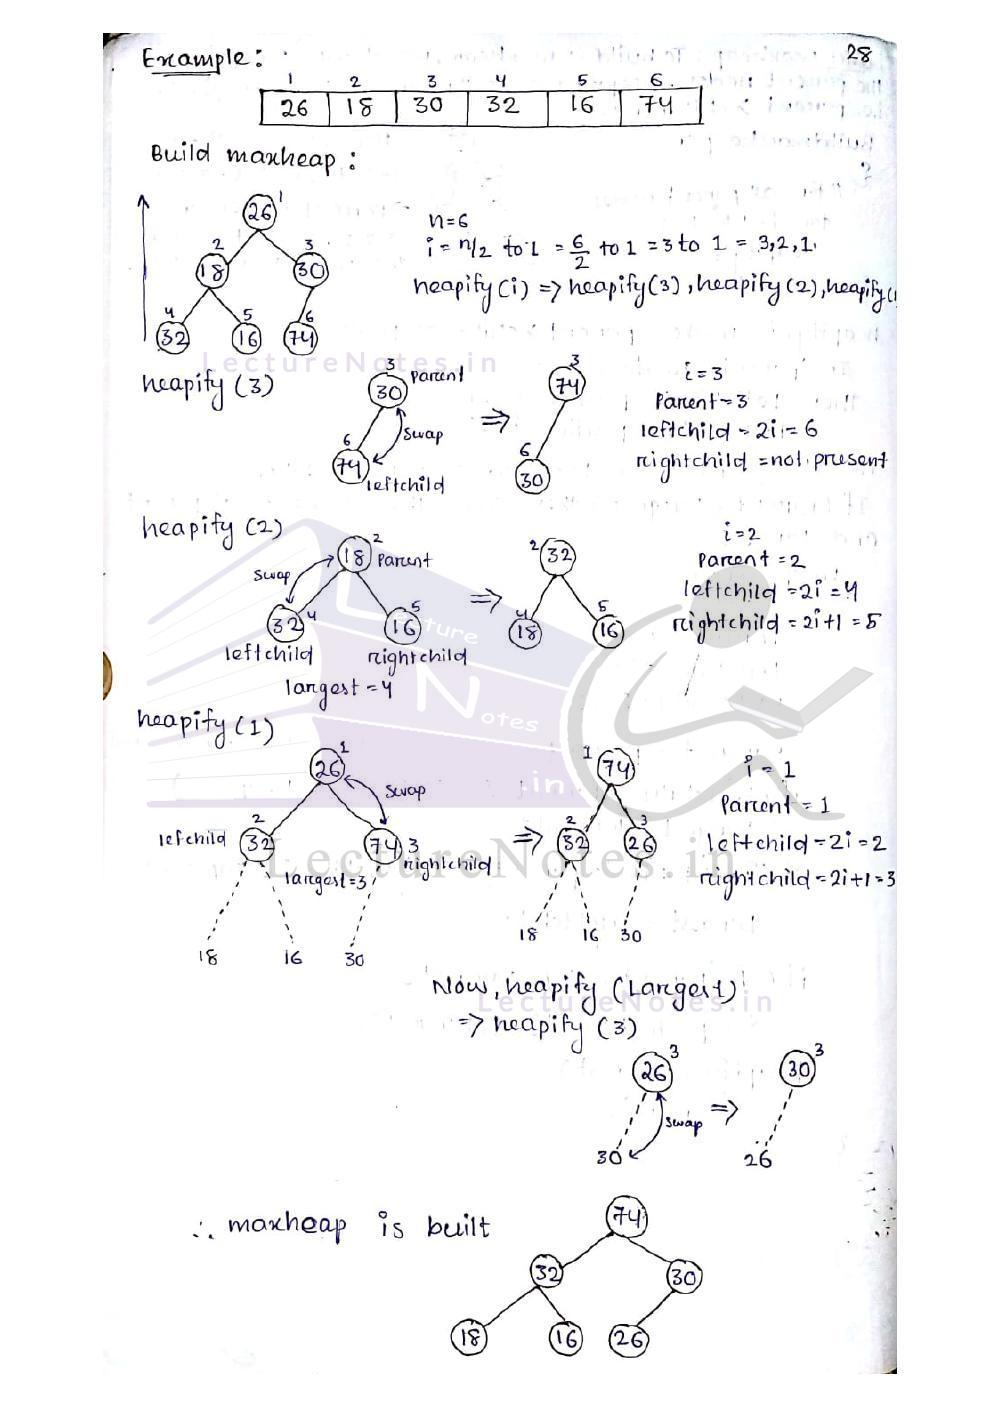 Example:
28
1 2 3 4 5 6
26 18 30 32 16 74
Build maxheap:
26 1
2 3
18 30
4 5 6
32 16 74
n=6
i = n/2 to 1 = 6/2 to 1 = 3 to 1 = 3,2,1.
heapify(i) => heapify(3), heapify(2), heapify(1
LectureNotes.in
heapify (3)
3
30 Parent
swap
6
74
leftchild
=>
3
74
6
30
i=3
Parent=3
leftchild = 2i = 6
rightchild = not present
heapify (2)
2
18 Parent
swap
32 4
5
16
leftchild rightchild
largest = 4
=>
2 32
4 5
18 16
i=2
Parent = 2
leftchild = 2i = 4
rightchild = 2i+1 = 5
Lecture
Notes
.in
heapify (1)
1
26
swap
2
lefchild 32
74 3
rightchild
largest=3
18 16 30
=>
1 74
2 3
32 26
18 16 30
i = 1
Parent = 1
left child = 2i = 2
right child = 2i+1 = 3
LectureNotes.in
Now, heapify (Largest)
LectureNotes.in
=> heapify (3)
3
26
swap
30
=>
3
30
26
∴ maxheap is built
74
32 30
18 16 26